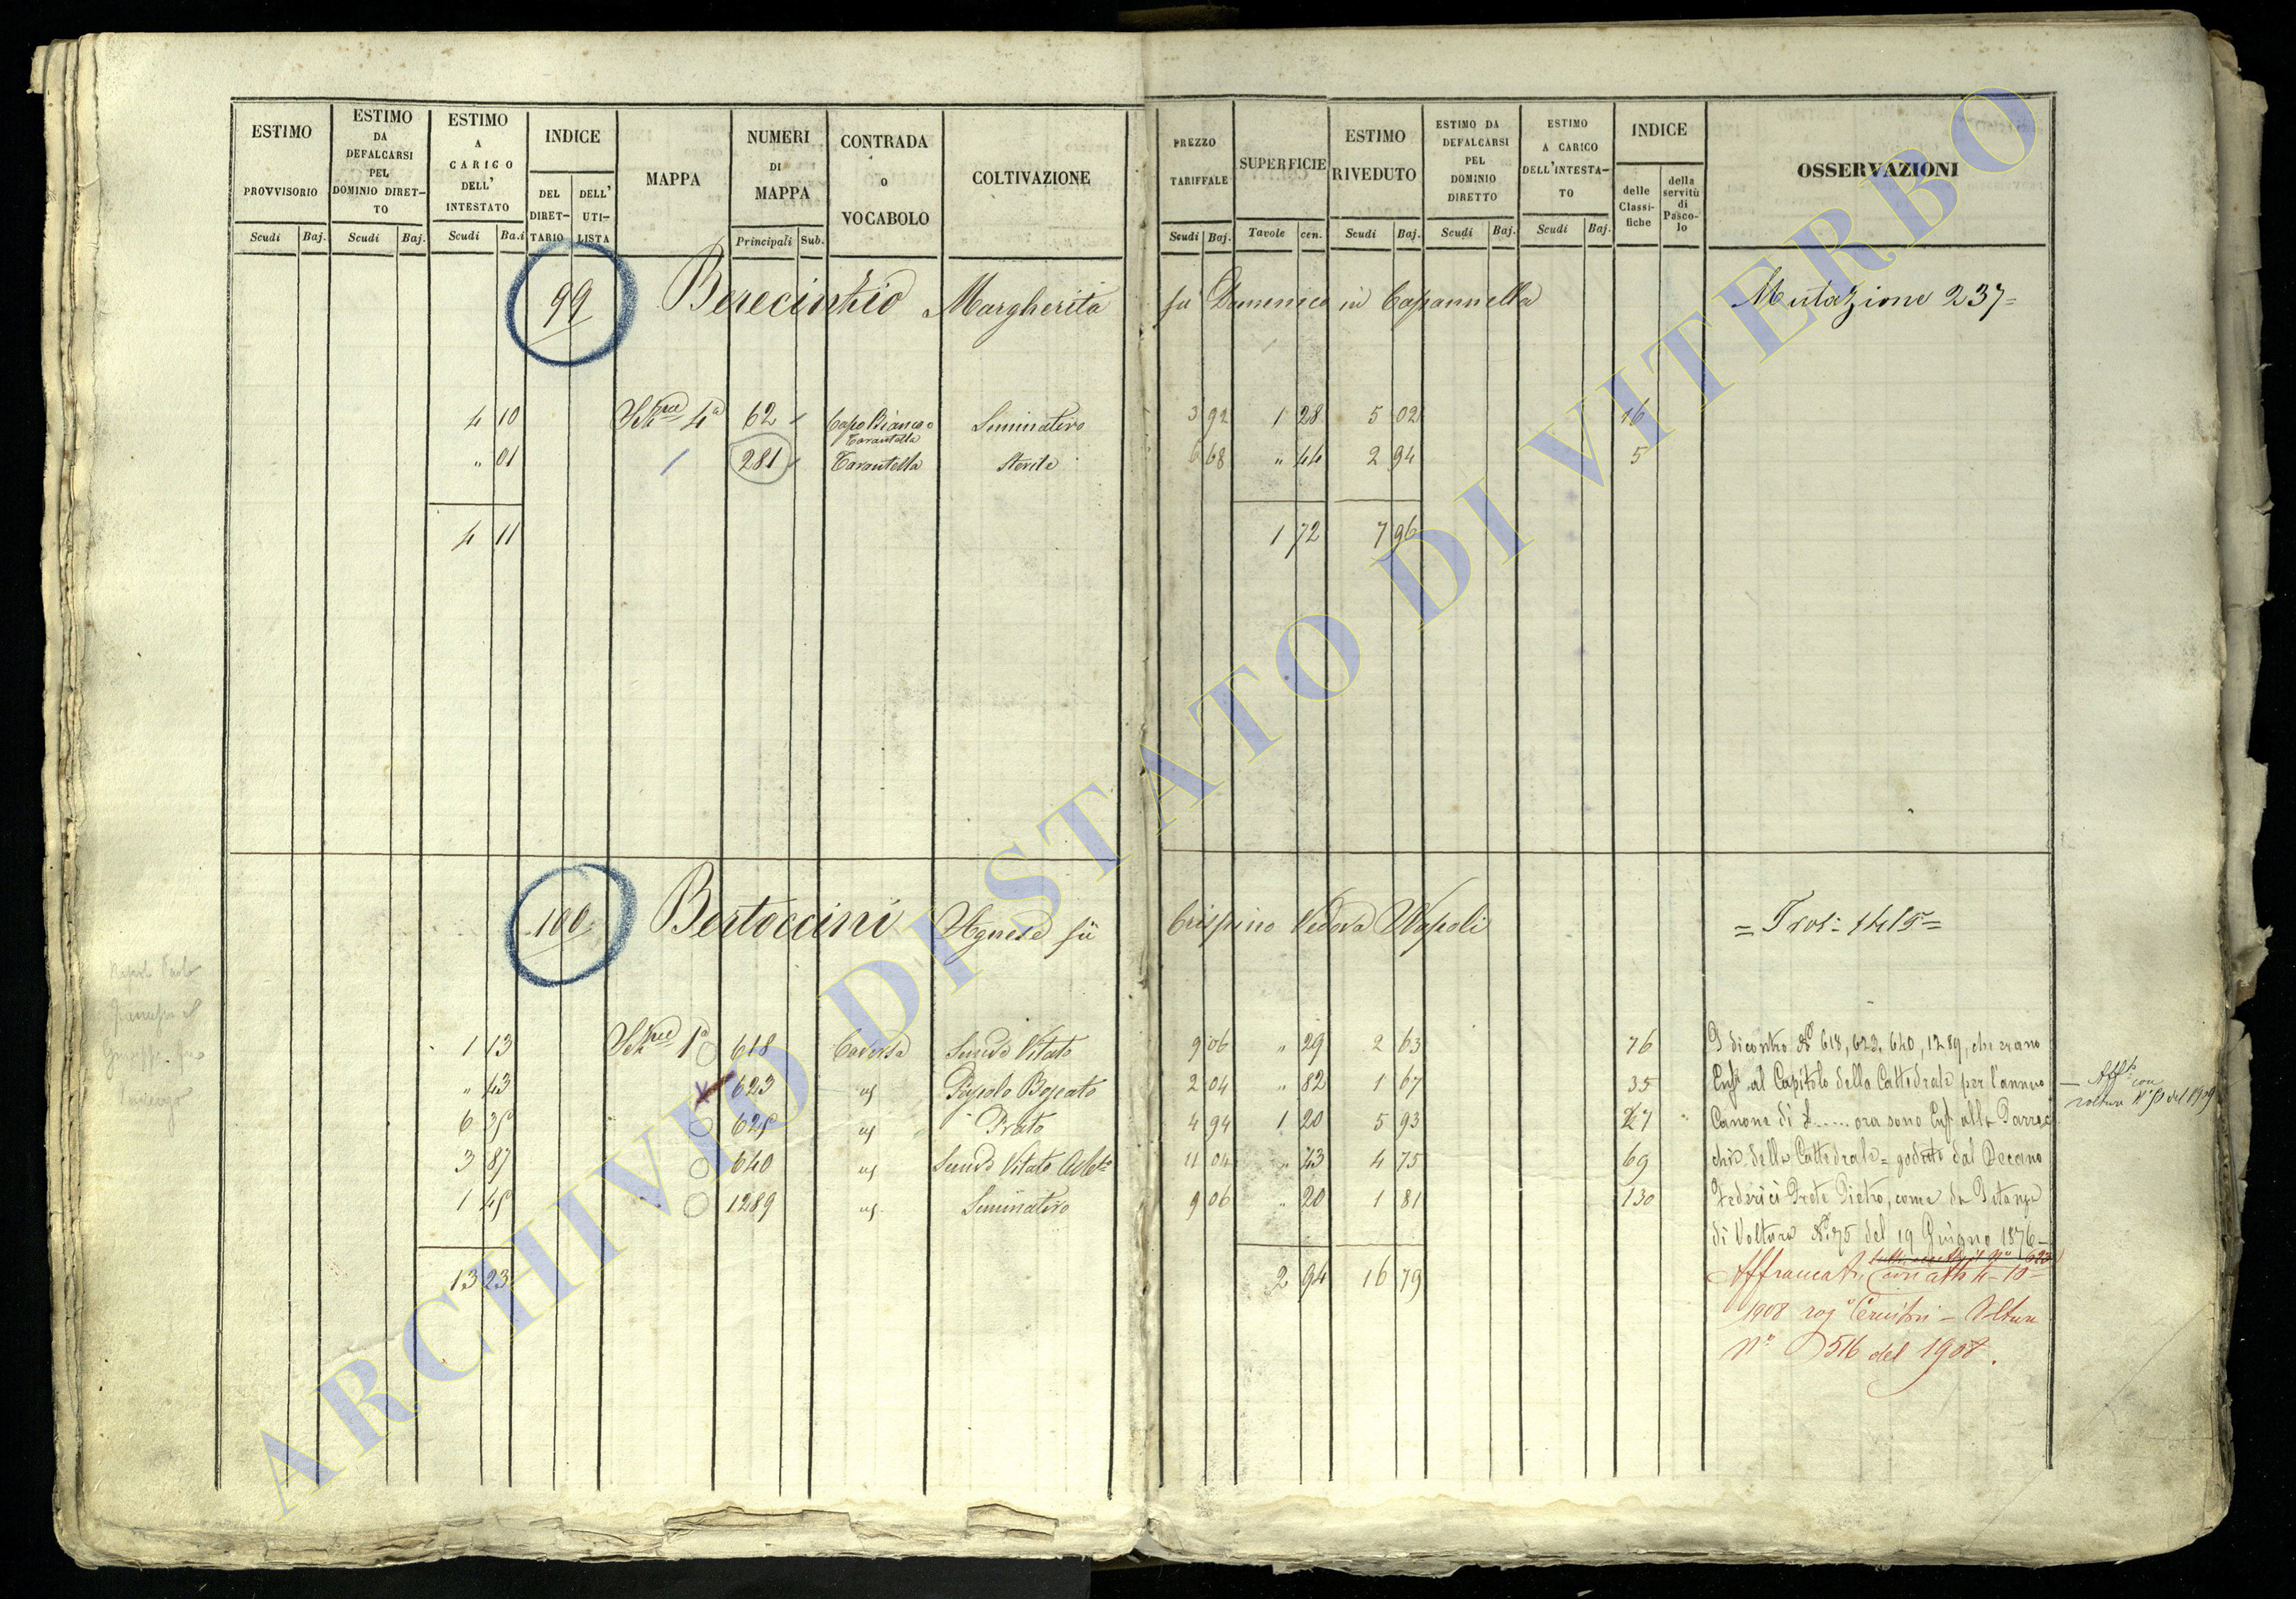 ESTIMO PROVVISORIO
Scudi Baj.
ESTIMO DA DEFALCARSI PEL DOMINIO DIRETTO
Scudi Baj.
ESTIMO A CARICO DELL' INTESTATO
Scudi Ba.i
INDICE
DEL DIRETTARIO
DELL' UTILISTA
MAPPA
NUMERI DI MAPPA
Principali Sub.
CONTRADA o VOCABOLO
COLTIVAZIONE
PREZZO TARIFFALE
Scudi Baj.
SUPERFICIE
Tavole cen.
ESTIMO RIVEDUTO
Scudi Baj.
ESTIMO DA DEFALCARSI PEL DOMINIO DIRETTO
Scudi Baj.
ESTIMO A CARICO DELL'INTESTATO
Scudi Baj.
INDICE
delle Classifiche
della servitù di Pascolo
OSSERVAZIONI
99 Berecintio Margherita fu Domenico in Capannella Mutazione 237=
4 10 4ª 62 Capo Bianco o Tarantella Seminativo 3 92 1 28 5 02 16
" 01 281 Tarantella Sterile 6 68 " 44 2 94 5
4 11 1 72 7 96
100 Bertoccini Agnese fu Crispino Vedova Napoli
1 13 1ª 618 Seminº Vitato 9 06 " 29 2 63 76
" 43 623 2 04 " 82 1 67 35
6 35 625 Prato 4 94 1 20 5 93 27
3 87 640 Seminº Vitato 11 04 " 43 4 75 69
1 45 1289 Seminativo 9 06 " 20 1 81 130
13 23 2 94 16 79
I dicontro Nº 618, 623, 640, 1289, che erano
al Capitolo della Cattedrale per l'annuo
Canone di ora sono alla Parroc
chia della Cattedrale = goduto dal Decano
Federici Prete Pietro, come da Istanza
di Voltura Nº 75 del 19 Giugno 1876 —
Affrancati con atto 4-10=
1908 rog° – Voltura
Nº 516 del 1908.
ARCHIVIO DI STATO DI VITERBO